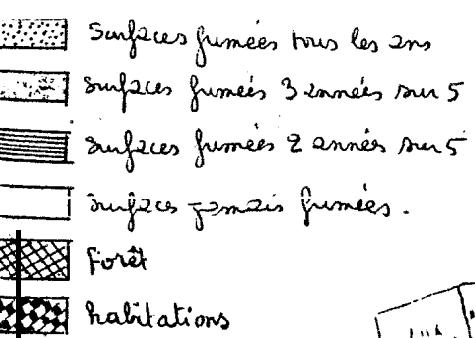 Surfaces fumées tous les ans
surfaces fumées 3 années sur 5
surfaces fumées 2 années sur 5
surfaces jamais fumées.
forêt
habitations